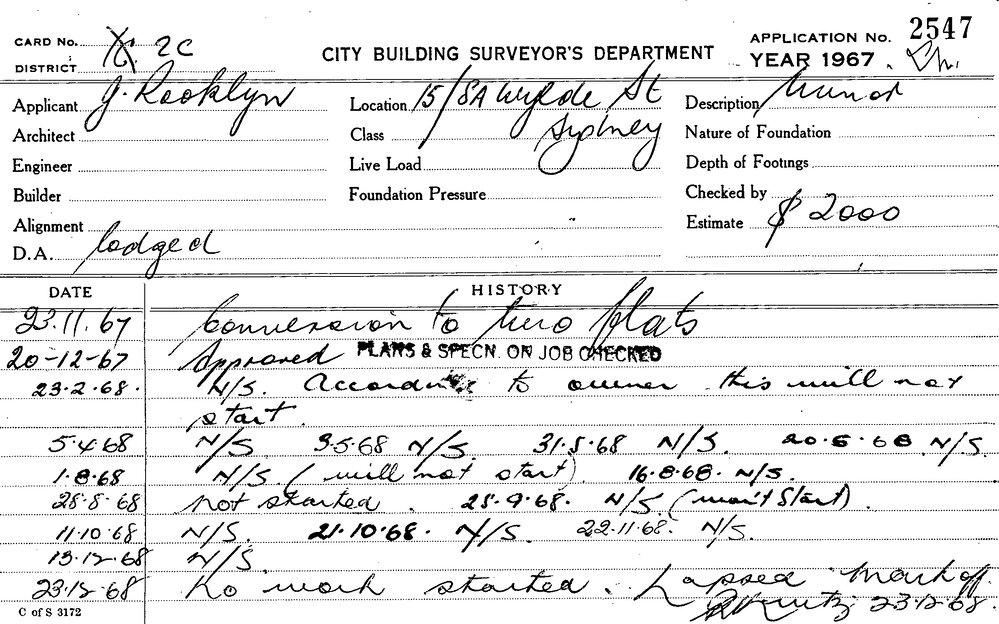 2547
CARD No. 2C
CITY BUILDING SURVEYOR'S DEPARTMENT
APPLICATION No.
DISTRICT
YEAR 1967
Applicant J. Rooklyn
Location 15/8A Wylde St
Description Minor
Architect
Class Sydney
Nature of Foundation
Engineer
Live Load
Depth of Footings
Builder
Foundation Pressure
Checked by
Alignment
Estimate $ 2000
D.A. lodged
DATE HISTORY
23.11.67 Conversion to two flats
20-12-67 Approved PLANS & SPECN. ON JOB CHECKED
23.2.68. N/S. According to owner this will not
start.
5.4.68 N/S 3.5.68 N/S. 31.5.68 N/S. 20.6.68 N/S.
1.8.68 N/S. (will not start) 16.8.68. N/S.
28.8.68 not started. 25.9.68. N/S. (won't Start).
11.10.68 N/S. 21.10.68. N/S. 22.11.68. N/S.
13.12.68 N/S.
23.12.68 No work started. Lapsed Mark off.
23.12.68.
C of S 3172